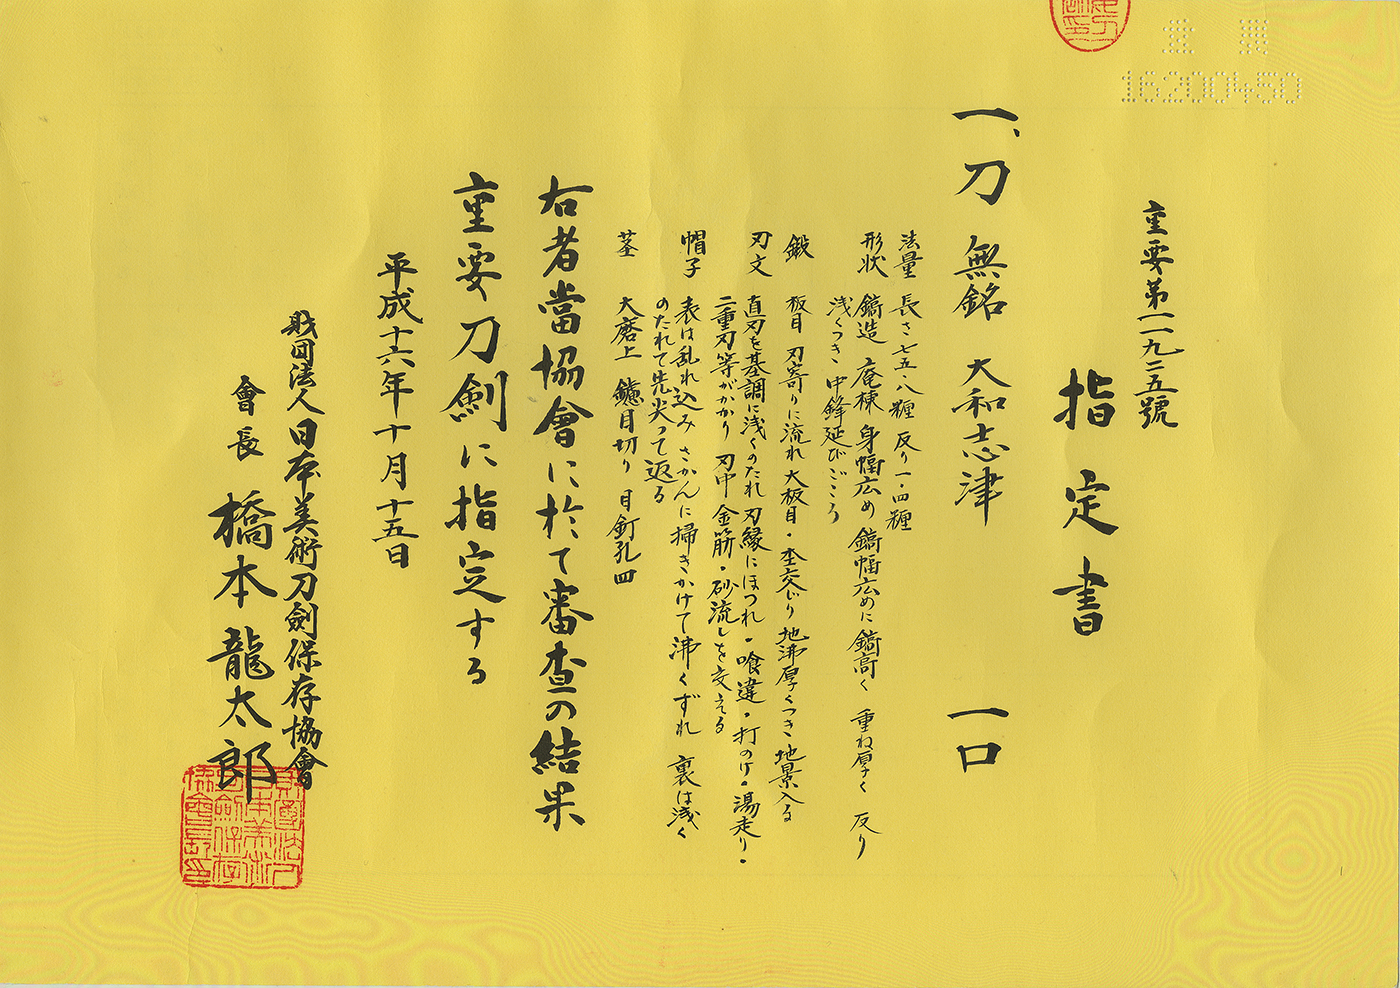 16200450
重要第一一九二五號
指定書
一、刀 無銘 大和志津 一口
法量 長さ七五・八糎 反り一・四糎
形状 鎬造 庵棟 身幅広め 鎬幅広めに鎬高く 重ね厚く 反り
浅くつき 中鋒延びごころ
鍛 板目 刃寄りに流れ 大板目・杢交じり 地沸厚くつき 地景入る
刃文 直刃を基調に浅くのたれ 刃縁にほつれ・喰違・打のけ・湯走り・
二重刃等がかかり 刃中 金筋・砂流しを交える
帽子 表は乱れ込み さかんに掃きかけて沸くずれ 裏は浅く
のたれて先尖って返る
茎 大磨上 鑢目切り 目釘孔四
右者當協會に於て審査の結果
重要刀劍に指定する
平成十六年十月十五日
財団法人日本美術刀劍保存協會
會長 橋本龍太郎